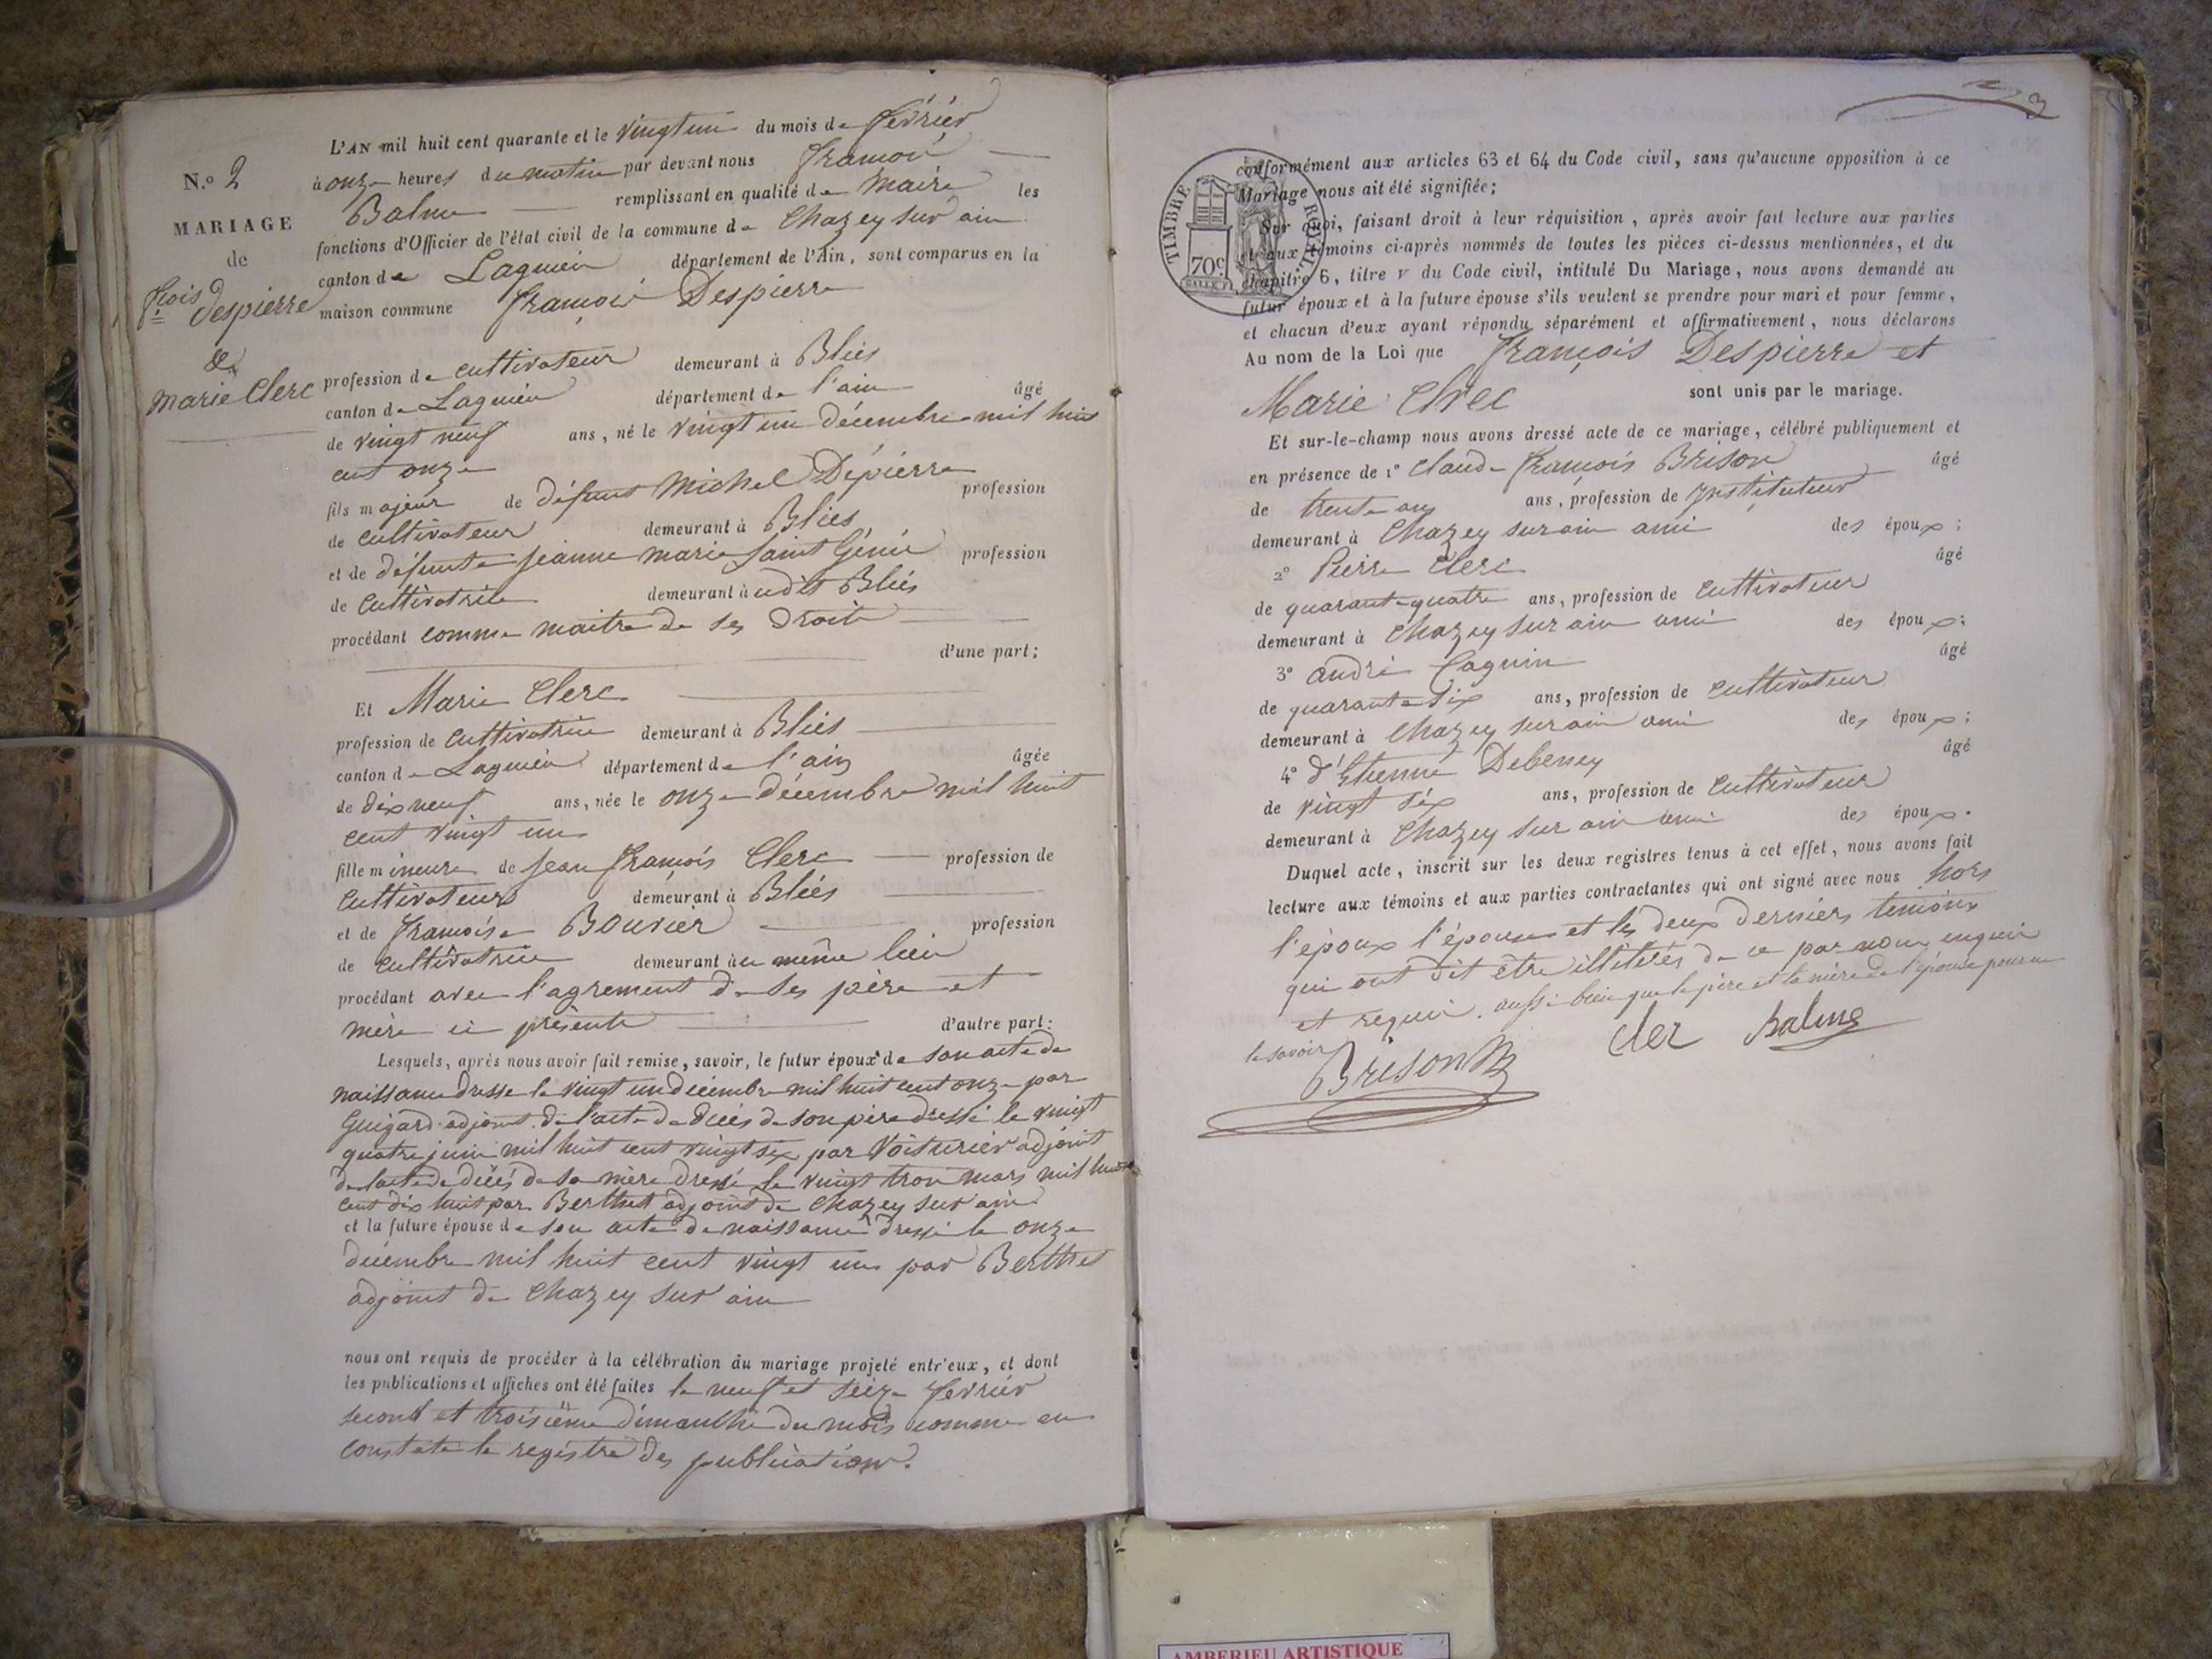 N.o 2
MARIAGE
de
fçois
despierre
&
marie Clerc
L'AN mil huit cent quarante et le vingt un du mois de février
à onze heures du matin par devant nous françois
Balme remplissant en qualité de Maire les
fonctions d'Officier de l'état civil de la commune de Chazey sur ain
canton de Lagnieu département de l'Ain, sont comparus en la
maison commune françois Despierre
profession de cultivateur demeurant à Blies
canton de Lagnieu département de l'ain âgé
de vingt neuf ans, né le vingt un décembre mil huit
cent onze
fils majeur de défunt Michel Dépierre profession
de cultivateur demeurant à Blies
et de défunte jeanne marie Saint Génie profession
de cultivatrice demeurant à udit Blies
procédant comme maitre de ses Droits
d'une part;
Et Marie Clerc
profession de cultivatrice demeurant à Blies
canton de Lagnieu département de l'ain âgée
de dix neuf ans, née le onze décembre mil huit
cent vingt un
fille mineure de jean françois Clerc profession de
cultivateur demeurant à Bliés
et de françoise Bouvier profession
de cultivatrice demeurant àu même lieu
procédant avec l'agrement de ses père et
mère ici présents d'autre part:
Lesquels, après nous avoir fait remise, savoir, le futur époux de son acte de
naissance dressé le vingt un décembre mil huit cent onze par
Guigard adjoint. de l'acte de décés de son père dressé le vingt
quatre juin mil huit cent vingt six par Voiturier adjoint
de l'acte de décés de sa mère dressé le vingt trois mars mil huit
cent dix huit par Berthet adjoint de Chazey sur ain
et la future épouse de son acte de naissance dressé le onze
décembre mil huit cent vingt un par Berthet
adjoint de Chazey sur ain
nous ont requis de procéder à la célébration du mariage projeté entr'eux, et dont
les publications et affiches ont été faites le neuf et seize février
second et troisième dimanche du mois comme en
constate le registre des publications.
3
TIMBRE ROYAL
70c
conformément aux articles 63 et 64 du Code civil, sans qu'aucune opposition à ce
Mariage nous ait été signifiée;
Sur quoi, faisant droit à leur réquisition, après avoir fait lecture aux parties
et aux témoins ci-après nommés de toutes les pièces ci-dessus mentionnées, et du
chapitre 6, titre v du Code civil, intitulé Du Mariage, nous avons demandé au
futur époux et à la future épouse s'ils veulent se prendre pour mari et pour femme,
et chacun d'eux ayant répondu séparément et affirmativement, nous déclarons
Au nom de la Loi que françois Despierre et
Marie Clrec sont unis par le mariage.
Et sur-le-champ nous avons dressé acte de ce mariage, célébré publiquement et
en présence de 1° Claude françois Brison âgé
de trente ans ans, profession de ynstituteur
demeurant à Chazey sur ain ami des époux;
2° Pierre Clerc âgé
de quarante quatre ans, profession de cultivateur
demeurant à Chazey sur ain ami des époux;
3° andré Cagnin âgé
de quarante six ans, profession de cultivateur
demeurant à Chazey sur ain ami des époux;
4° d'Etienne Debeney âgé
de vingt six ans, profession de cultivateur
demeurant à Chazey sur ain ami des époux.
Duquel acte, inscrit sur les deux registres tenus à cet effet, nous avons fait
lecture aux témoins et aux parties contractantes qui ont signé avec nous hors
l'époux l'épouse et les deux derniers temoins
qui ont dit être illitérés de ce par nous enquis
et requis. aussi bien que le père et la mère de l'épouse pour ne
le savoir
Brison
Cler
Balme
AMBERIEU ARTISTIQUE